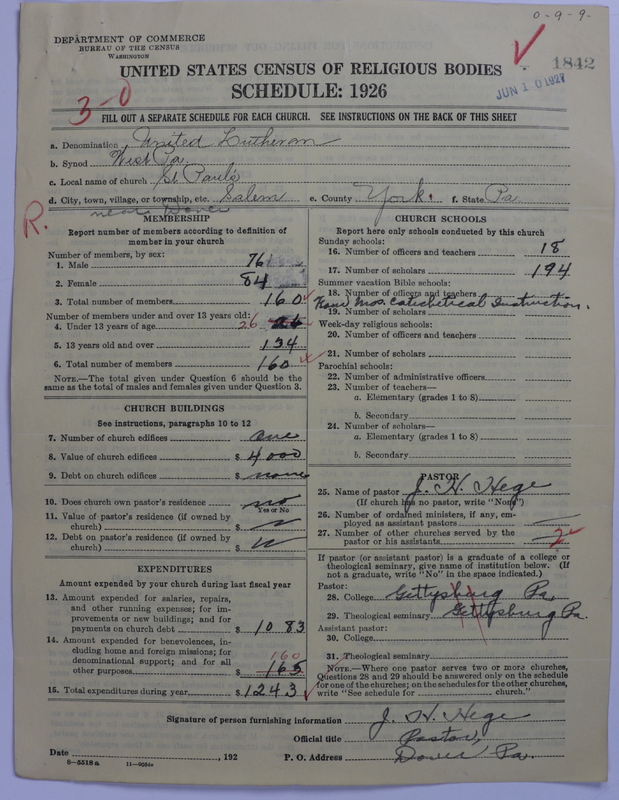 0-9-9-
DEPARTMENT OF COMMERCE
BUREAU OF THE CENSUS
WASHINGTON
1842
JUN 10 1927
UNITED STATES CENSUS OF RELIGIOUS BODIES
SCHEDULE: 1926
3-0
FILL OUT A SEPARATE SCHEDULE FOR EACH CHURCH. SEE INSTRUCTIONS ON THE BACK OF THIS SHEET
a. Denomination United Lutheran
b. Synod West Pa.
c. Local name of church St Paul's
d. City, town, village, or township, etc. Salem e. County York. f. State Pa
near Dover
R.
MEMBERSHIP
Report number of members according to definition of
member in your church
Number of members, by sex:
1. Male 76
2. Female 84
3. Total number of members 160
Number of members under and over 13 years old:
4. Under 13 years of age 26 26
5. 13 years old and over 134
6. Total number of members 160
NOTE.—The total given under Question 6 should be the
same as the total of males and females given under Question 3.
CHURCH BUILDINGS
See instructions, paragraphs 10 to 12
7. Number of church edifices one
8. Value of church edifices $ 4000
9. Debt on church edifices $ none
10. Does church own pastor's residence no
Yes or No
11. Value of pastor's residence (if owned by
church) $
12. Debt on pastor's residence (if owned by
church) $
EXPENDITURES
Amount expended by your church during last fiscal year
13. Amount expended for salaries, repairs,
and other running expenses; for im-
provements or new buildings; and for
payments on church debt $ 1083
14. Amount expended for benevolences, in-
cluding home and foreign missions; for
denominational support; and for all
other purposes $ 160 165
15. Total expenditures during year $ 1243
CHURCH SCHOOLS
Report here only schools conducted by this church
Sunday schools:
16. Number of officers and teachers 18
17. Number of scholars 194
Summer vacation Bible schools:
18. Number of officers and teachers
Four mos. Catechetical Instruction.
19. Number of scholars
Week-day religious schools:
20. Number of officers and teachers
21. Number of scholars
Parochial schools:
22. Number of administrative officers
23. Number of teachers—
a. Elementary (grades 1 to 8)
b. Secondary
24. Number of scholars—
a. Elementary (grades 1 to 8)
b. Secondary
PASTOR
25. Name of pastor J. H. Hege
(If church has no pastor, write "None")
26. Number of ordained ministers, if any, em-
ployed as assistant pastors
27. Number of other churches served by the
pastor or his assistants 2
If pastor (or assistant pastor) is a graduate of a college or
theological seminary, give name of institution below. (If
not a graduate, write "No" in the space indicated.)
Pastor:
28. College Gettysburg Pa
29. Theological seminary Gettysburg Pa.
Assistant pastor:
30. College
31. Theological seminary
NOTE.—Where one pastor serves two or more churches,
Questions 28 and 29 should be answered only on the schedule
for one of the churches; on the schedules for the other churches,
write "See schedule for church."
Signature of person furnishing information J. H. Hege
Official title Pastor,
Date , 192 P. O. Address Dover Pa.
8-5518a 11-9084a